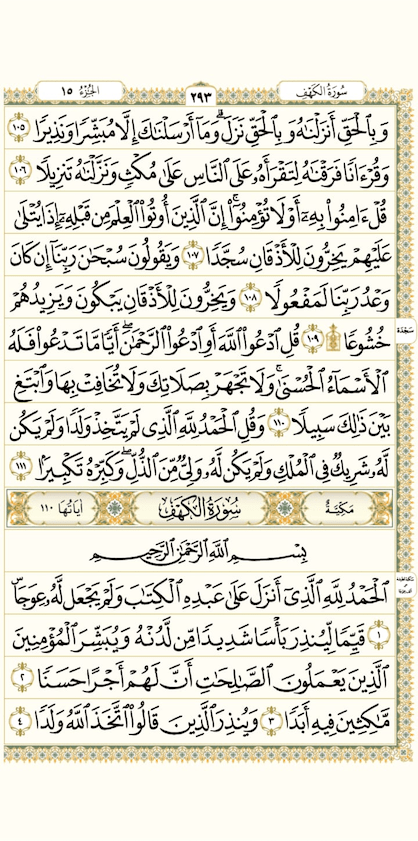 سُورَةُ الكَهْفِ
٢٩٣
الجُزْءُ ١٥
وَبِٱلْحَقِّ أَنزَلْنَٰهُ وَبِٱلْحَقِّ نَزَلَ ۗ وَمَآ أَرْسَلْنَٰكَ إِلَّا مُبَشِّرًا وَنَذِيرًا ١٠٥
وَقُرْءَانًا فَرَقْنَٰهُ لِتَقْرَأَهُۥ عَلَى ٱلنَّاسِ عَلَىٰ مُكْثٍ وَنَزَّلْنَٰهُ تَنزِيلًا ١٠٦
قُلْ ءَامِنُوا۟ بِهِۦٓ أَوْ لَا تُؤْمِنُوٓا۟ ۚ إِنَّ ٱلَّذِينَ أُوتُوا۟ ٱلْعِلْمَ مِن قَبْلِهِۦٓ إِذَا يُتْلَىٰ
عَلَيْهِمْ يَخِرُّونَ لِلْأَذْقَانِ سُجَّدًا ١٠٧ وَيَقُولُونَ سُبْحَٰنَ رَبِّنَآ إِن كَانَ
وَعْدُ رَبِّنَا لَمَفْعُولًا ١٠٨ وَيَخِرُّونَ لِلْأَذْقَانِ يَبْكُونَ وَيَزِيدُهُمْ
خُشُوعًا ۩ ١٠٩ قُلِ ٱدْعُوا۟ ٱللَّهَ أَوِ ٱدْعُوا۟ ٱلرَّحْمَٰنَ ۖ أَيًّا مَّا تَدْعُوا۟ فَلَهُ
سَجْدَة
ٱلْأَسْمَآءُ ٱلْحُسْنَىٰ ۚ وَلَا تَجْهَرْ بِصَلَاتِكَ وَلَا تُخَافِتْ بِهَا وَٱبْتَغِ
بَيْنَ ذَٰلِكَ سَبِيلًا ١١٠ وَقُلِ ٱلْحَمْدُ لِلَّهِ ٱلَّذِى لَمْ يَتَّخِذْ وَلَدًا وَلَمْ يَكُن
لَّهُۥ شَرِيكٌ فِى ٱلْمُلْكِ وَلَمْ يَكُن لَّهُۥ وَلِىٌّ مِّنَ ٱلذُّلِّ ۖ وَكَبِّرْهُ تَكْبِيرًۢا ١١١
مَكِيَّةٌ سُورَةُ الكَهْفِ آيَاتُهَا ١١٠
بِسْمِ ٱللَّهِ ٱلرَّحْمَٰنِ ٱلرَّحِيمِ
ٱلْحَمْدُ لِلَّهِ ٱلَّذِىٓ أَنزَلَ عَلَىٰ عَبْدِهِ ٱلْكِتَٰبَ وَلَمْ يَجْعَل لَّهُۥ عِوَجَاۜ
١ قَيِّمًا لِّيُنذِرَ بَأْسًا شَدِيدًا مِّن لَّدُنْهُ وَيُبَشِّرَ ٱلْمُؤْمِنِينَ
ٱلَّذِينَ يَعْمَلُونَ ٱلصَّٰلِحَٰتِ أَنَّ لَهُمْ أَجْرًا حَسَنًا ٢
مَّٰكِثِينَ فِيهِ أَبَدًا ٣ وَيُنذِرَ ٱلَّذِينَ قَالُوا۟ ٱتَّخَذَ ٱللَّهُ وَلَدًا ٤